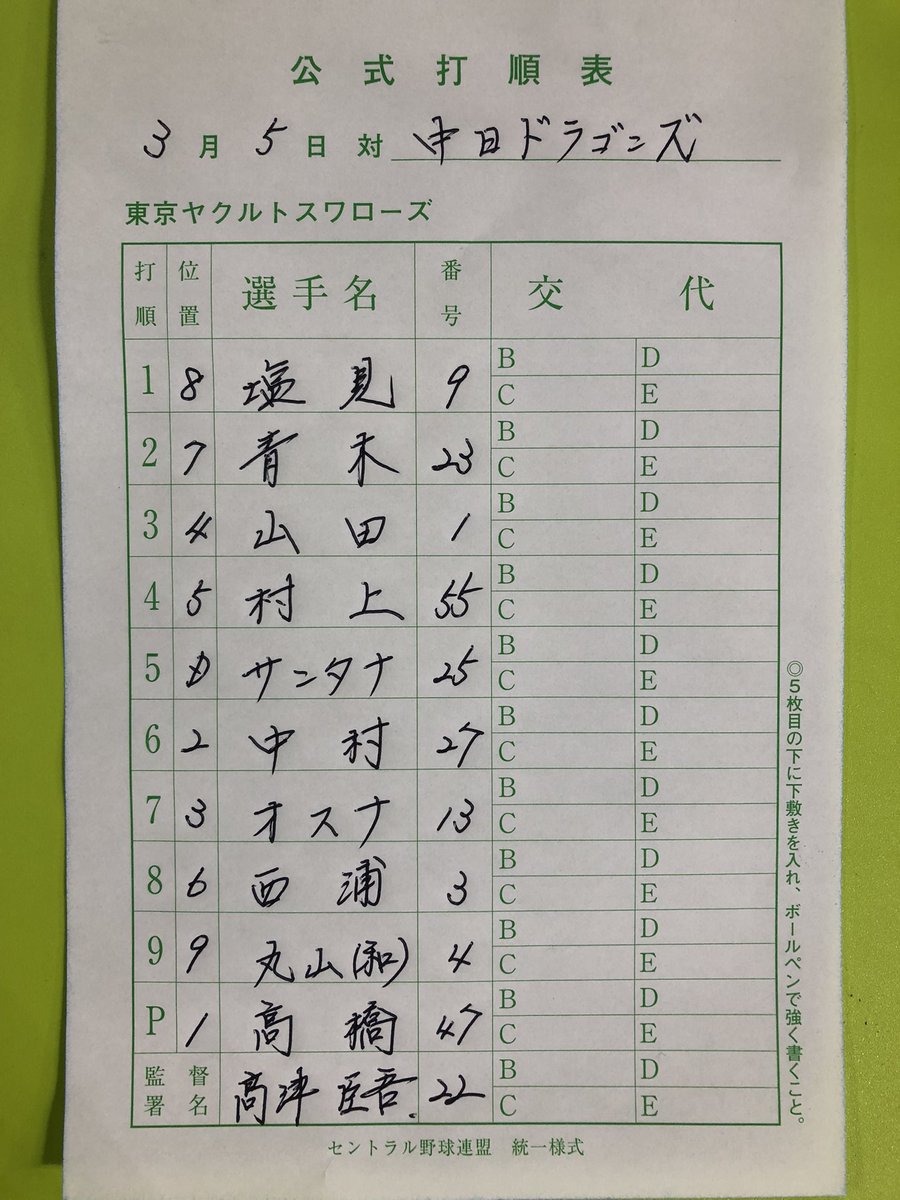 公式打順表
3月5日 対 中日ドラゴンズ
東京ヤクルトスワローズ
打順 位置 選手名 番号 交代
1 8 塩見 9 B D
C E
2 7 青木 23 B D
C E
3 4 山田 1 B D
C E
4 5 村上 55 B D
C E
5 D サンタナ 25 B D
C E
6 2 中村 27 B D
C E
7 3 オスナ 13 B D
C E
8 6 西浦 3 B D
C E
9 9 丸山(和) 4 B D
C E
P 1 高橋 47 B D
C E
監督署名 高津臣吾 22 B D
C E
◎5枚目の下に下敷きを入れ、ボールペンで強く書くこと。
セントラル野球連盟 統一様式